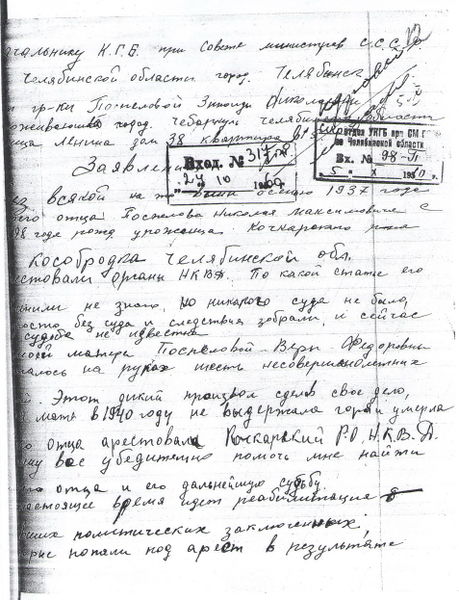 ачальнику К.Г.Б. при Совете министров С.С.С.Р.
Челябинской области город. Челябинск
гр-ки Поспеловой Зинаиды Николаевны
оживающая город. Чебаркуль Челябинской области
ица Мкима зап 38 квартира
Заявлени
Вход. № 317
"24" 10 1960.
отдел УКГБ при СМ С
по Челябинской области
Вх. № 98-П
5 X 1960 г.
ез всякой на то вины осенью 1937 года
его отца Поспелова Николая Максимовича с
98 годе рожд урожанца Кочкарского рана
Кособродка Челябинской обл.
естовали органы НКВД. По какой статье его
или не знаю, но никакого суда не было,
осто без суда и следствия забрали, и сейчас
судьба не известна
моей матери Поспеловой Веры Федоровны
алось на руках шесть несовершенолетних
й. Этот дикий произвол сделов свое дело,
мать в 1940 году не выдержала горя и умерла
о отца арестовала Кочкарский Р.О.Н.К.В.Д.
шу вас убедительно помочь мне найти
его отца и его дальнейшую судьбу.
настоящее время идет реабилитация
вших политических заключенных,
орые попали под арест в результате